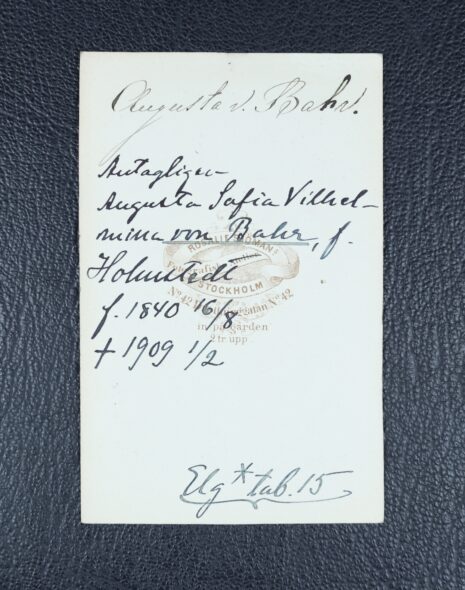 Augusta v. Bahr.
Antagligen
Augusta Sofia Vilhel-
mina von Bahr, f.
ROSALIE SOMANS
Holmstedt
STOCKHOLM
f. 1840 16/8
No 42 No 42
in på gården
† 1909 1/2
2 tr. upp.
Elg * tab. 15